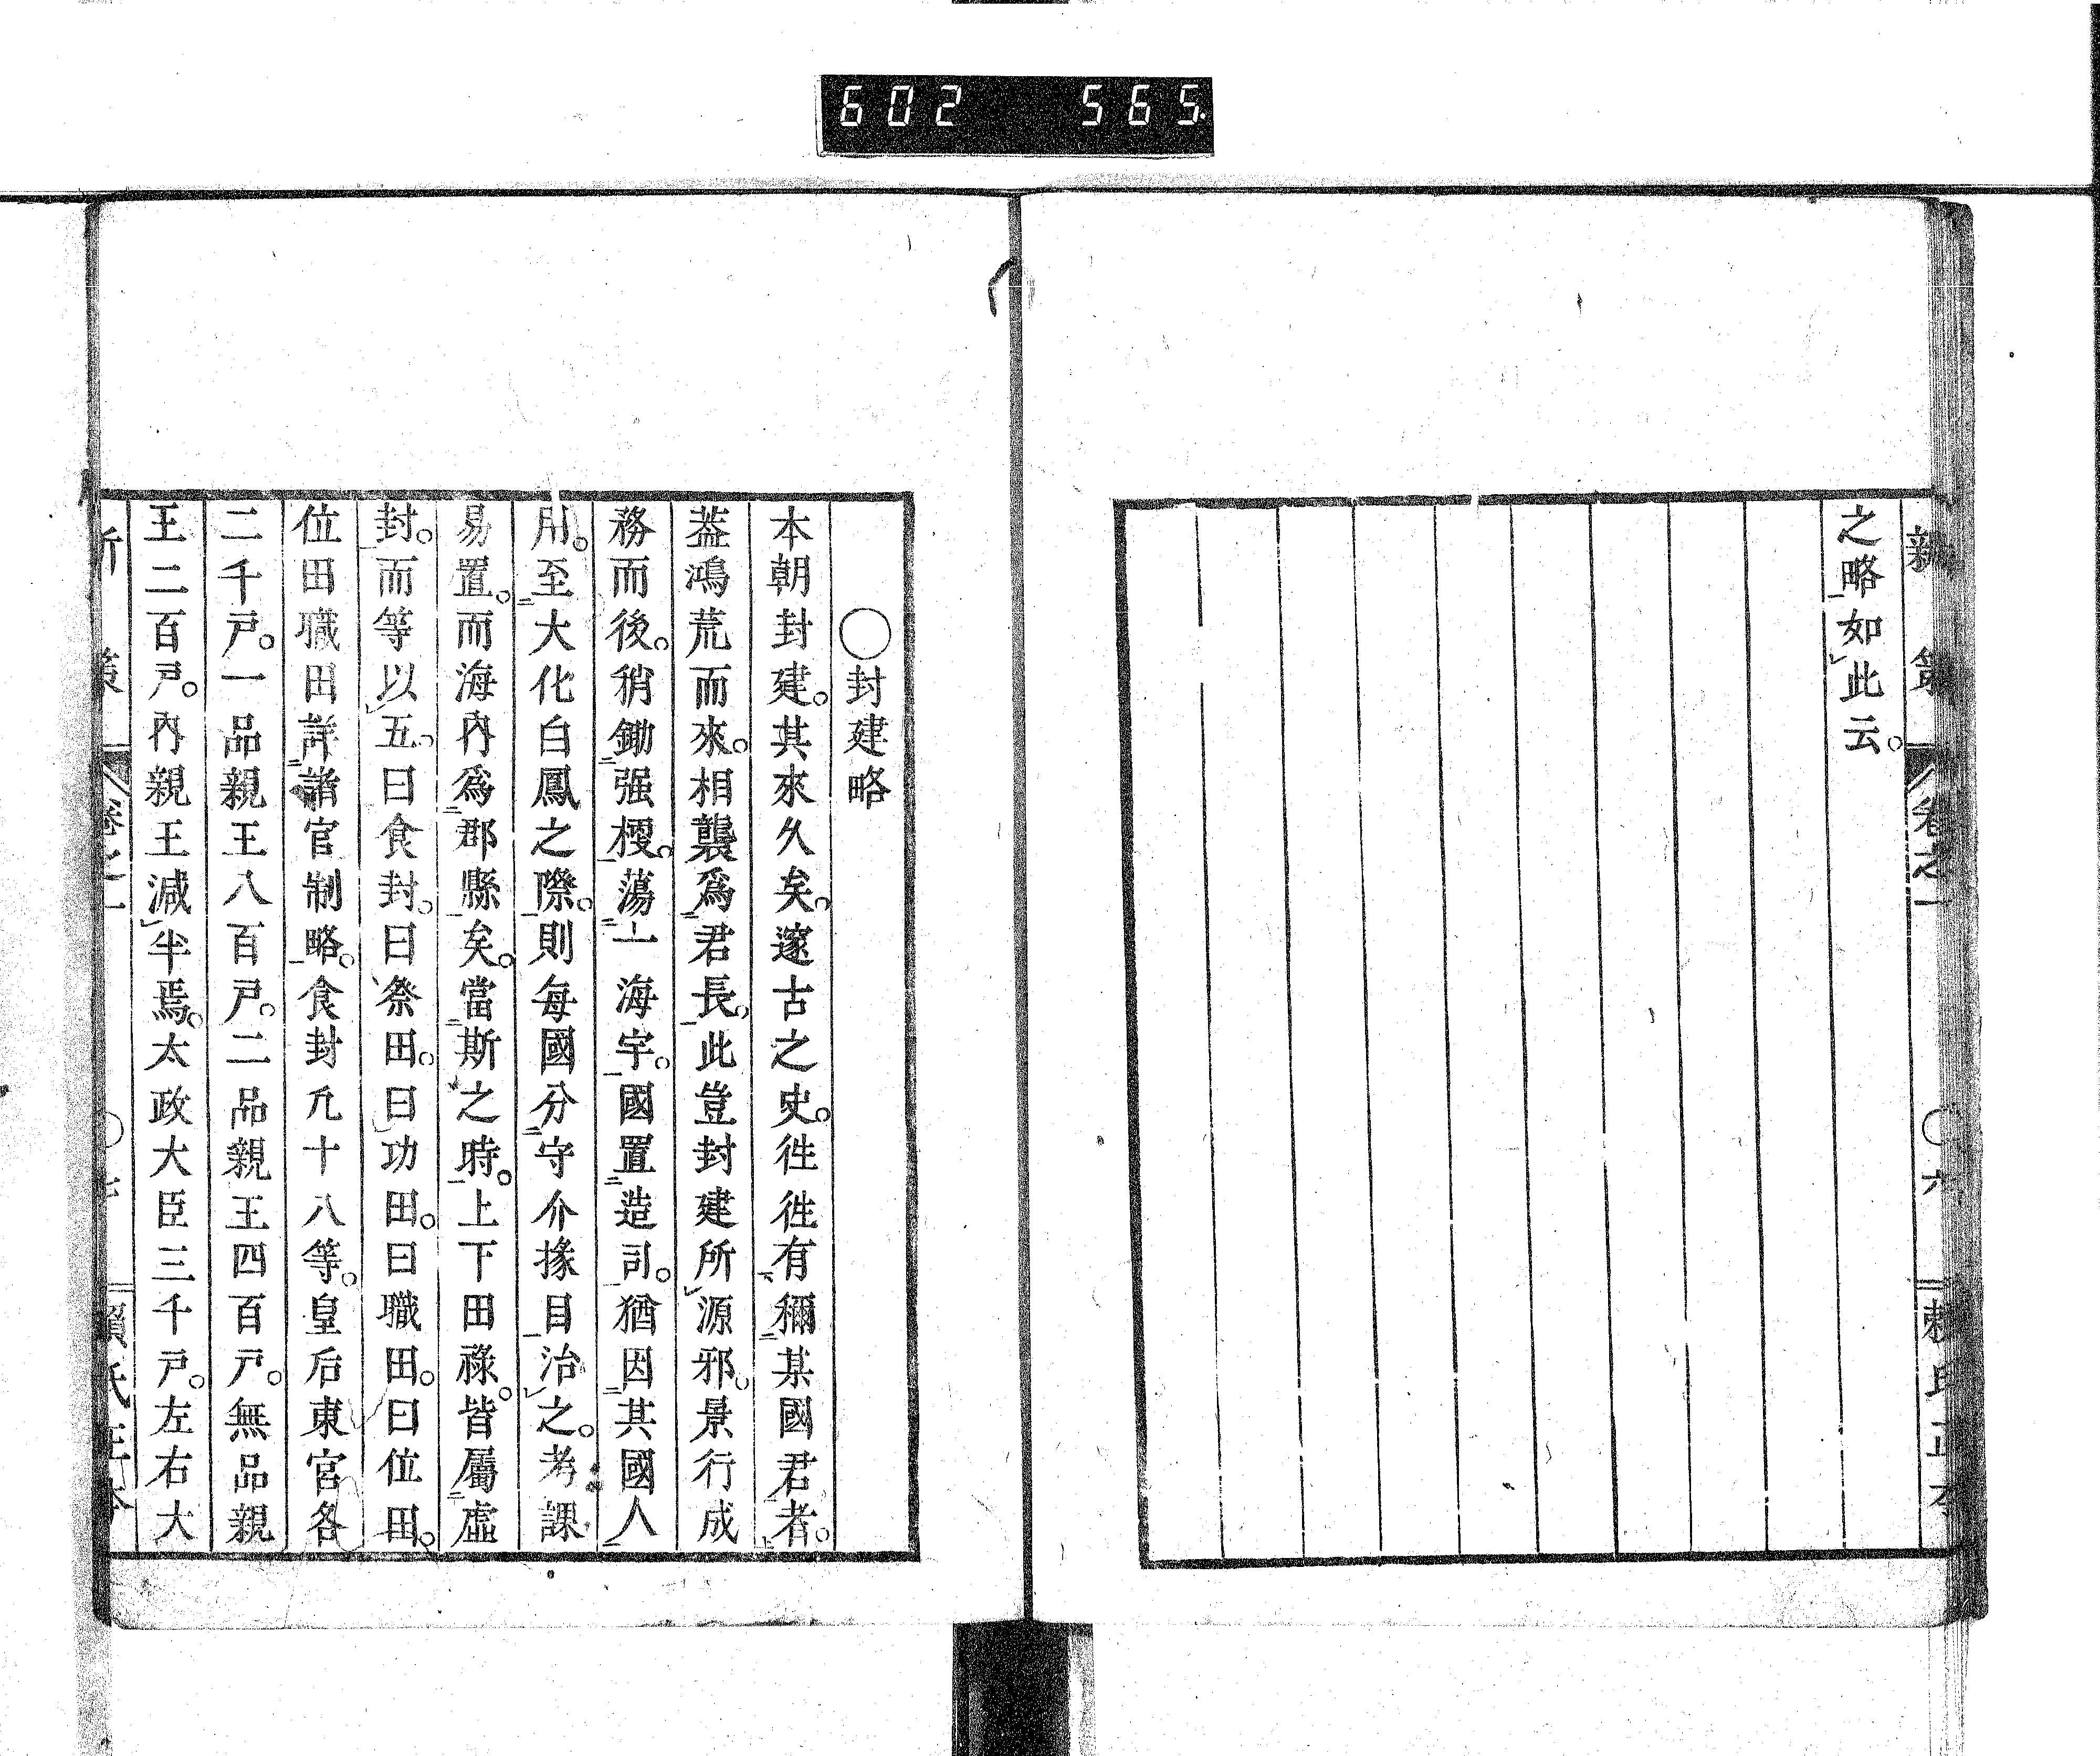 602 565
新策 卷之一 ○六 賴氏正本
之略如此云。
○封建略
本朝封建。其來久矣。邃古之史。徃徃有稱某國君者。
葢鴻荒而來。相襲爲君長。此豈封建所源邪。景行成
務而後。稍鋤强梗。蕩一海宇。國置造司。猶因其國人
用。至大化白鳳之際。則每國分守介掾目治之。考課
易置。而海內爲郡縣矣。當斯之時。上下田祿。皆屬虛
封。而等以五。曰食封。曰祭田。曰功田。曰職田。曰位田。
位田職田詳諸官制略。食封凢十八等。皇后東宮各
二千戸。一品親王八百戸。二品親王四百戸。無品親
王二百戸。內親王減半焉。太政大臣三千戸。左右大